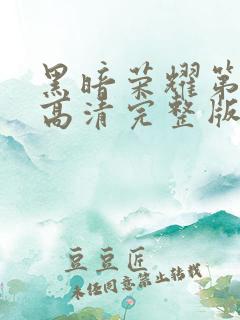 黑暗荣耀第
高清完整版
豆豆匠
未经同意禁止转载